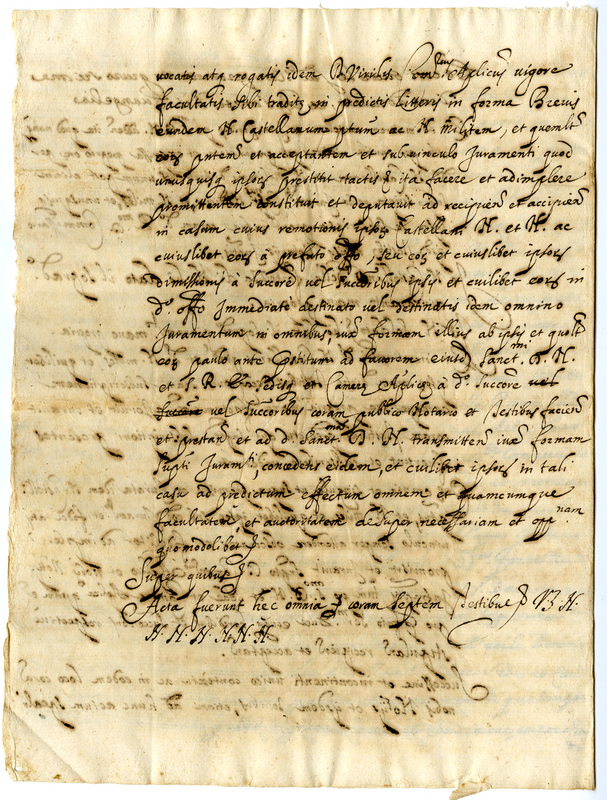 vocatis atq rogatis idem R. Viriles Comrius Aplicus vigore
facultatis sibi traditę in predictis Litteris in forma Brevis
eundem N. Castellanum ptum ac N. militem, et quemlt
eoȝ pntem et acceptantem et sub vinculo Juramenti quod
unusquisq ipsoȝ prestitit tactis ita facere et adimplere
promittentem constituit et deputavit ad recipien et accipien
in casum cuius remotionis ipsoȝ Castellani N. et N. ac
cuiuslibet eoȝ à prefato offo, seu eoȝ et cuiuslibet ipsoȝ
dimissionis à succore vel succoribus ipsis et cuilibet eoȝ in
do. offo Immediatè destinato vel destinatis idem omnino
Juramentum in omnibus, iuxa formam illius ab ipsis et quolt
eoȝ paulo ante pstitum ad favorem eiusd Sanctmi D. N.
et S. R. E. Sedisq et Camerę Aplicę à do. succore vel
succore vel succoribus coram publico Notario et Testibus facien
et prestan et ad d. Sanctmus D. N. transmitten iuxa formam
supti Juramti, concedens eidem, et cuilibet ipsoȝ in tali
casu ad predictum effectum omnem et quamcunque
facultatem, et auctoritatem desuper necessariam et oppnam
quomodolibet
Super quibus
Acta fuerunt hęc omnia coram septem Testibus VȜ. N.
N. N. N. N. N. N.